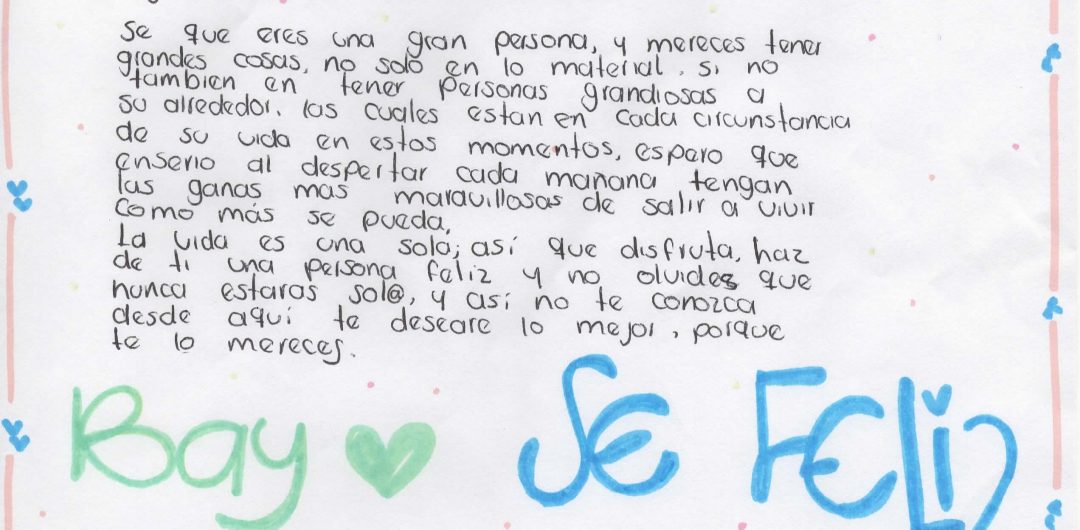 Se que eres una gran persona, y mereces tener
grandes cosas, no solo en lo material. si no
tambien en tener personas grandiosas a
su alrededor. las cuales estan en cada circunstancia
de su vida en estos momentos, espero que
enserio al despertar cada mañana tengan
las ganas mas maravillosas de salir a vivir
como más se pueda,
La vida es una sola; así que disfruta, haz
de ti una persona feliz y no olvides que
nunca estaras sol@, y así no te conozca
desde aquí te deseare lo mejor, porque
te lo mereces.
Bay SE FELiz